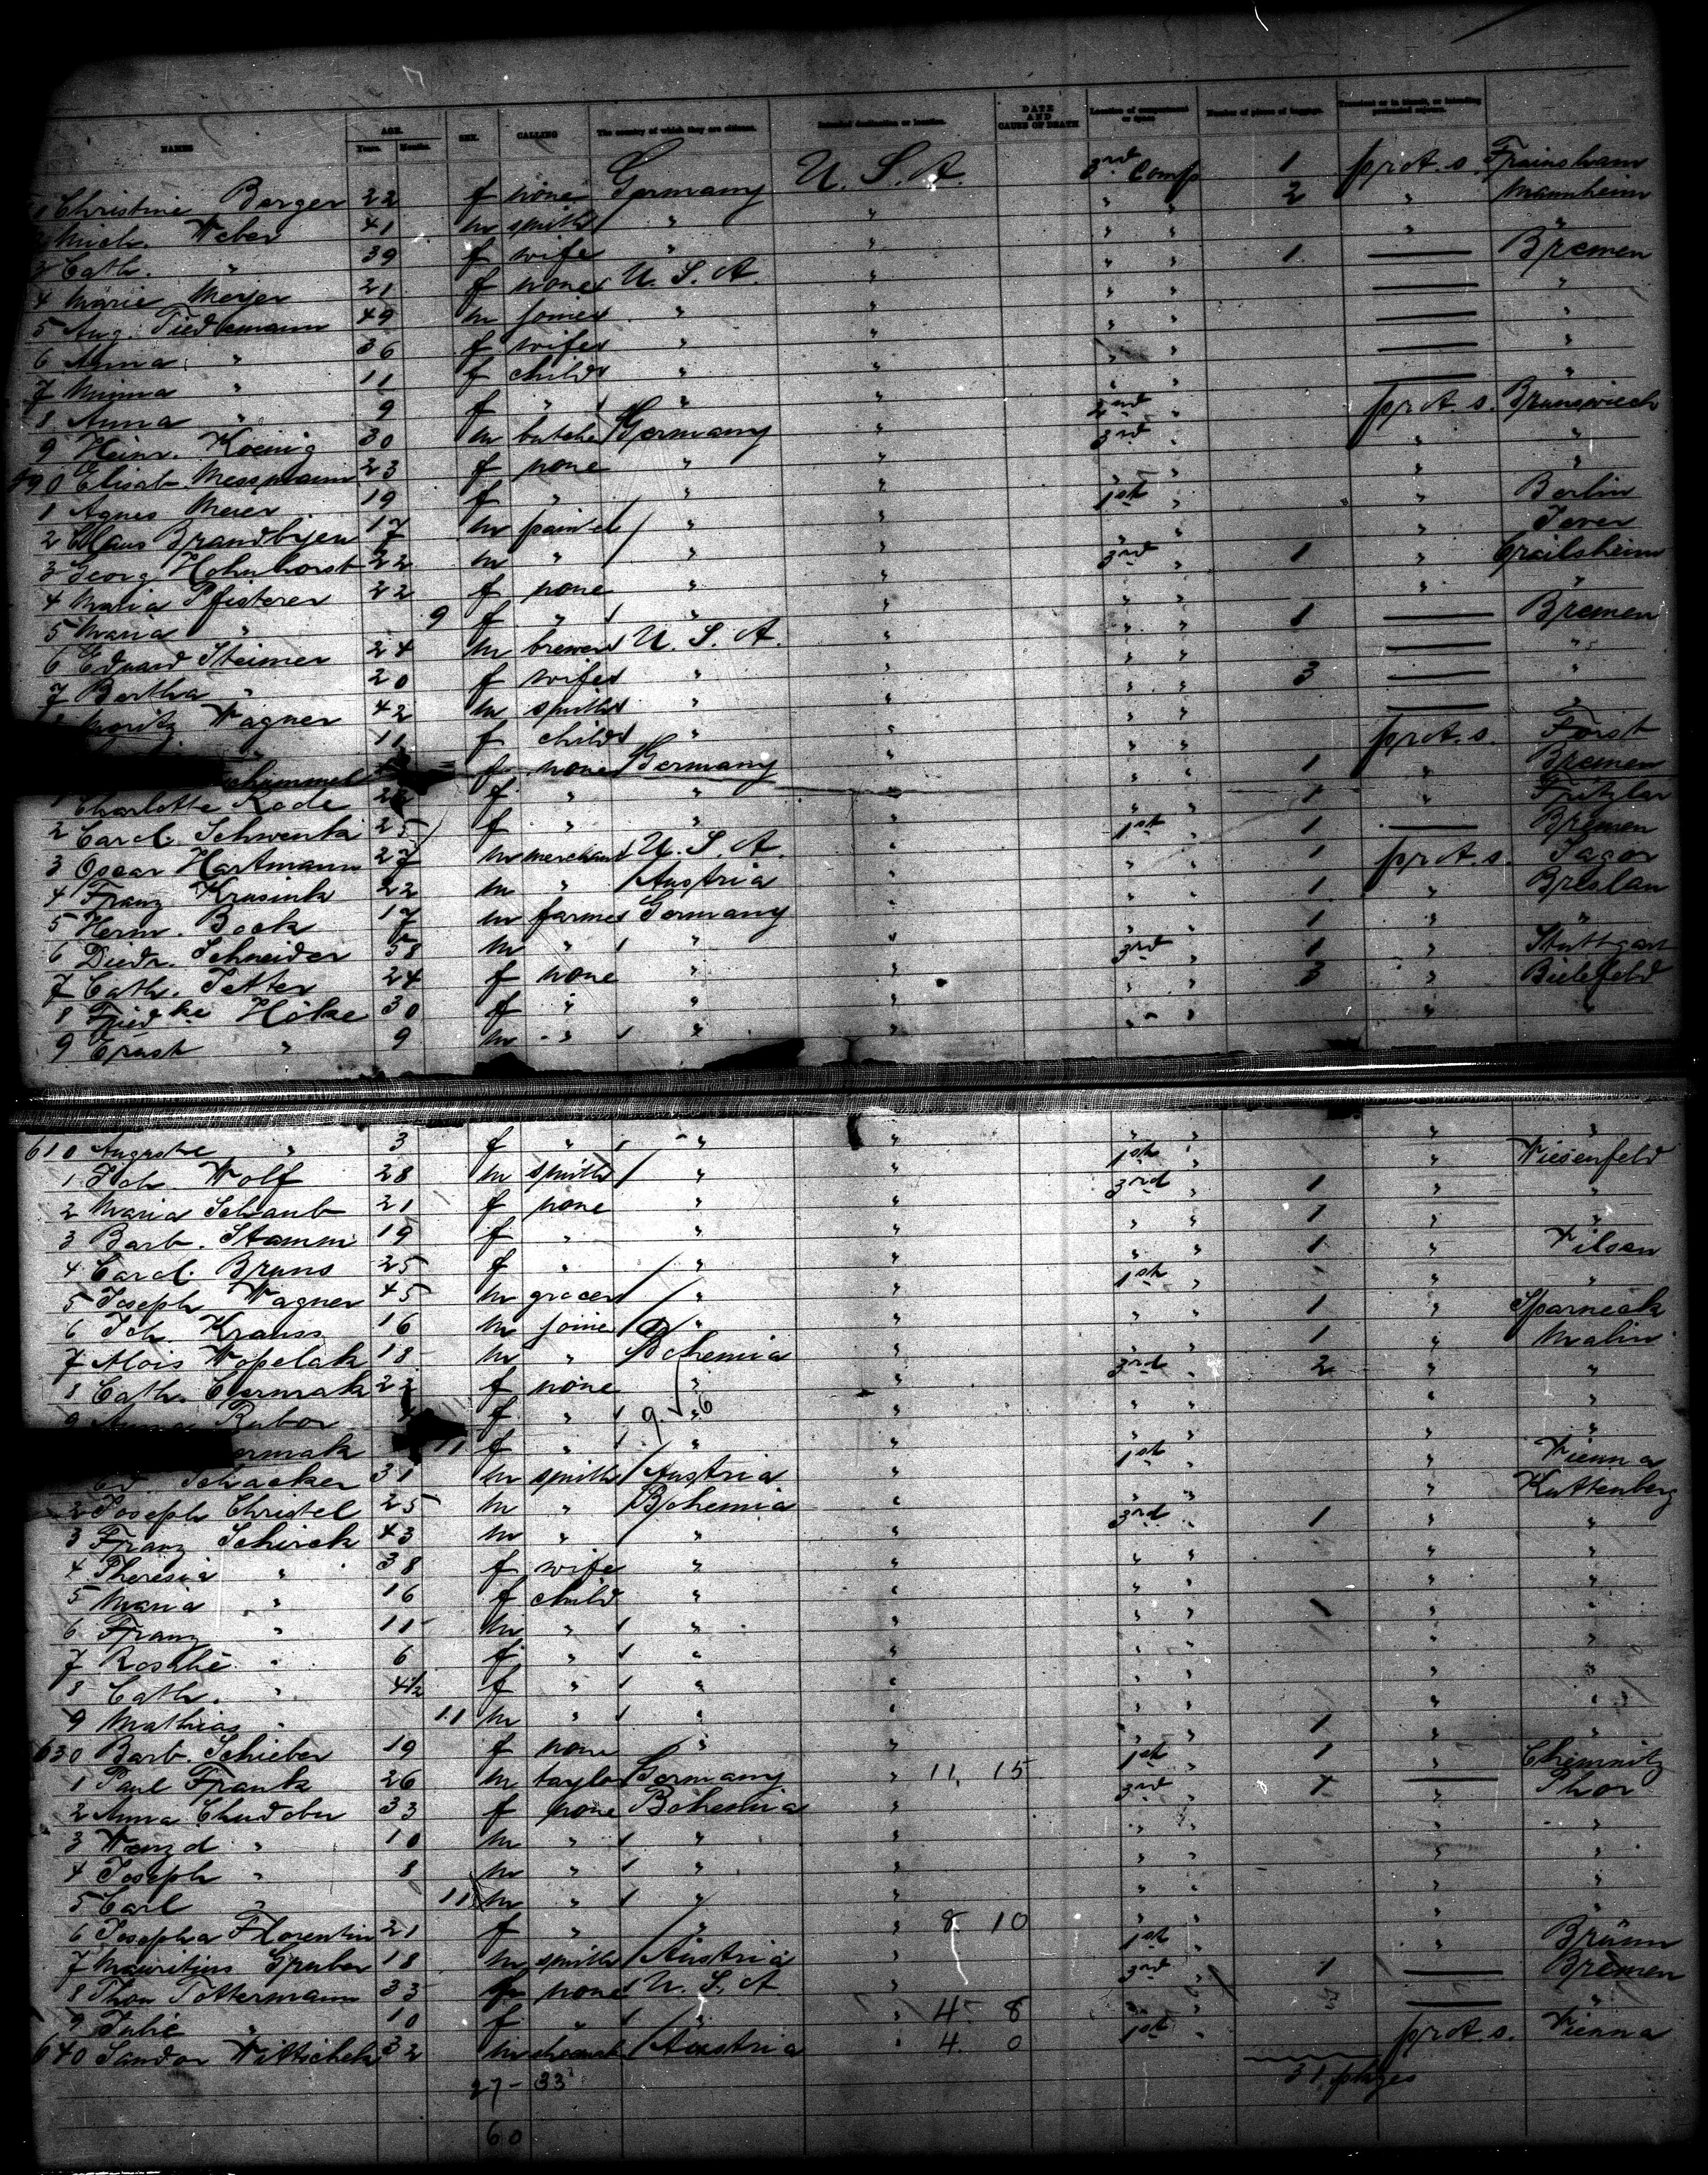 NAMES AGE. Years. Months. SEX. CALLING The country of which they are citizens. Intended destination or location. DATE AND CAUSE OF DEATH Location of compartment or space Number of pieces of luggage. Transient or in transit, or intending protracted sojourn.
1 Christine Berger 22 f none Germany U. S. A. 3rd Comp 1 prot. s.
2 Mich. Weber 41 m smith " " " " 2 " Mannheim
3 Cath. " 39 f wife " " " " " "
4 Marie Meyer 21 f none U. S. A. " " " 1 — Bremen
5 Aug. Tiedemann 49 m joiner " " " " — "
6 Anna " 36 f wife " " " " — "
7 Minna " 11 f child " " " " — "
8 Anna " 9 f " " " " " — "
9 Heinr. Koenig 30 m butcher Germany " 2nd " prot. s. Brunswick
590 Elisab. Messmann 23 f none " " 3rd " " "
1 Agnes Meier 19 f " " " " " " "
2 Claus 17 m painter " " 1st " " Berlin
3 Georg Hohnhorst 22 m " " " " " " Jever
4 Maria Pfisterer 22 f none " " 3rd " 1 " Crailsheim
5 Maria " 9 f " " " " " " "
6 Eduard Steimer 24 m brewer U. S. A. " " " 1 — Bremen
7 Bertha " 20 f wife " " " " — "
8 Moritz Wagner 42 m smith " " " " 3 — "
" 11 f child " " " " — "
f none Germany " " " prot. s. Forst
1 Charlotte Rode 22 f " " " " " 1 " Bremen
2 Carol. Schwenk 25 f " " " " " 1 " Fritzlar
3 Oscar Hartmann 27 m merchant U. S. A. " 1st " 1 — Bremen
4 Franz 22 m " Austria " " " 1 prot. s. Sagor
5 Herm. Bock 17 m farmer Germany " " " 1 " Breslau
6 Diedr. Schneider 58 m " " " " " 1 " "
7 Cath. Fetter 24 f none " " 3rd " 1 " Stuttgart
8 Friedke Höke 30 f " " " " " 3 " Bielefeld
9 Ernst " 9 m " " " " " " "
610 Auguste " 3 f " " " " " " "
1 Joh. Wolf 28 m smith " " 1st " " Wiesenfeld
2 Maria Schaub 21 f none " " 3rd " 1 " "
3 Barb. Stamm 19 f " " " " " 1 " "
4 Carol. Bruns 25 f " " " " " 1 " Vilsen
5 Joseph Wagner 45 m grocer " " 1st " " "
6 Joh. Krauss 16 m joiner " " " " 1 " Sparneck
7 Alois Wopelak 18 m " Bohemia " " " 1 " Malin
8 Cath. Cermak f none " " 3rd " 2 " "
9 Anna f " " " " " " "
ermak 11 f " " " " " " "
Ed. Schacker 31 m smith Austria " 1st " " Vienna
2 Joseph Christel 25 m " Bohemia " " " " Kuttenberg
3 Franz Schirck 43 m " " " 3rd " 1 " "
4 Theresia " 38 f wife " " " " " "
5 Maria " 16 f child " " " " " "
6 Franz " 11 m " " " " " " "
7 Rosalie " 6 f " " " " " " "
8 Cath. " 4½ f " " " " " " "
9 Mathias " 11 m " " " " " " "
630 Barb. Schieber 19 f none " " " " 1 " "
1 Paul Frank 26 m taylor Germany " 11. 15 1st " 1 " Chemnitz
2 Anna Chudober 33 f none Bohemia " 3rd " 1 — Thor
3 Wenzel " 10 m " " " " " " "
4 Joseph " 8 m " " " " " " "
5 Carl " 11 m " " " " " " "
6 Josepha Florentin 21 f " " " 8 10 " " " "
7 Mauritius Gruber 18 m smith Austria " 1st " " Brünn
8 Tottermann 33 f none U. S. A " 3rd " 1 — Bremen
9 Julie " 10 f " " " 4 8 " " — "
640 Sandor Wittichek 32 m Austria " 4 0 1st " prot. s. Vienna
27 - 33
60